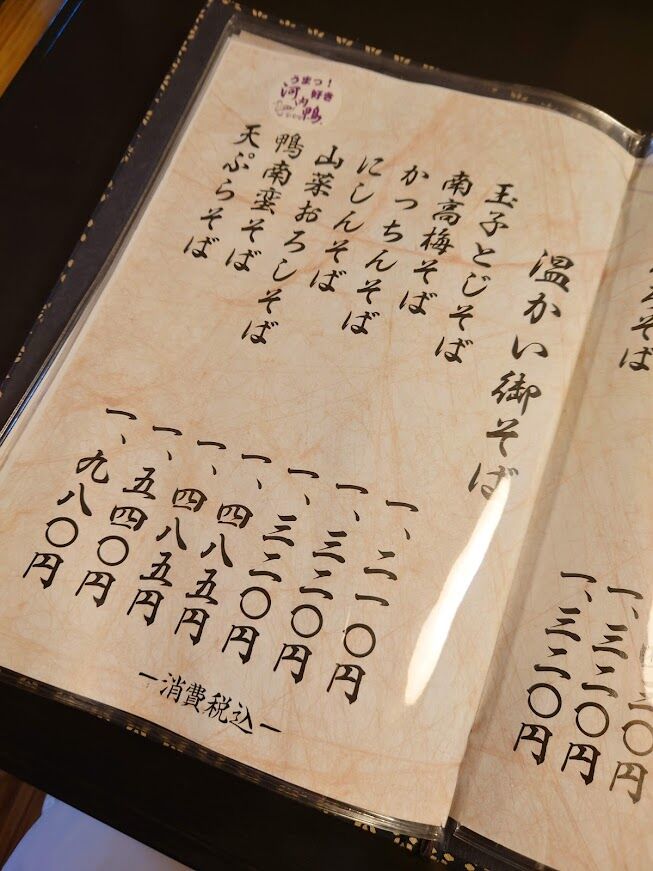 二〇円
一、三二〇円
一、三二〇円
温かい御そば
玉子とじそば 一、二一〇円
南高梅そば 一、三二〇円
かっちんそば 一、三二〇円
にしんそば 一、四八五円
山菜おろしそば 一、四八五円
鴨南蛮そば 一、五四〇円
天ぷらそば 一、九八〇円
ー消費税込ー
うまっ！
好き
河内鴨